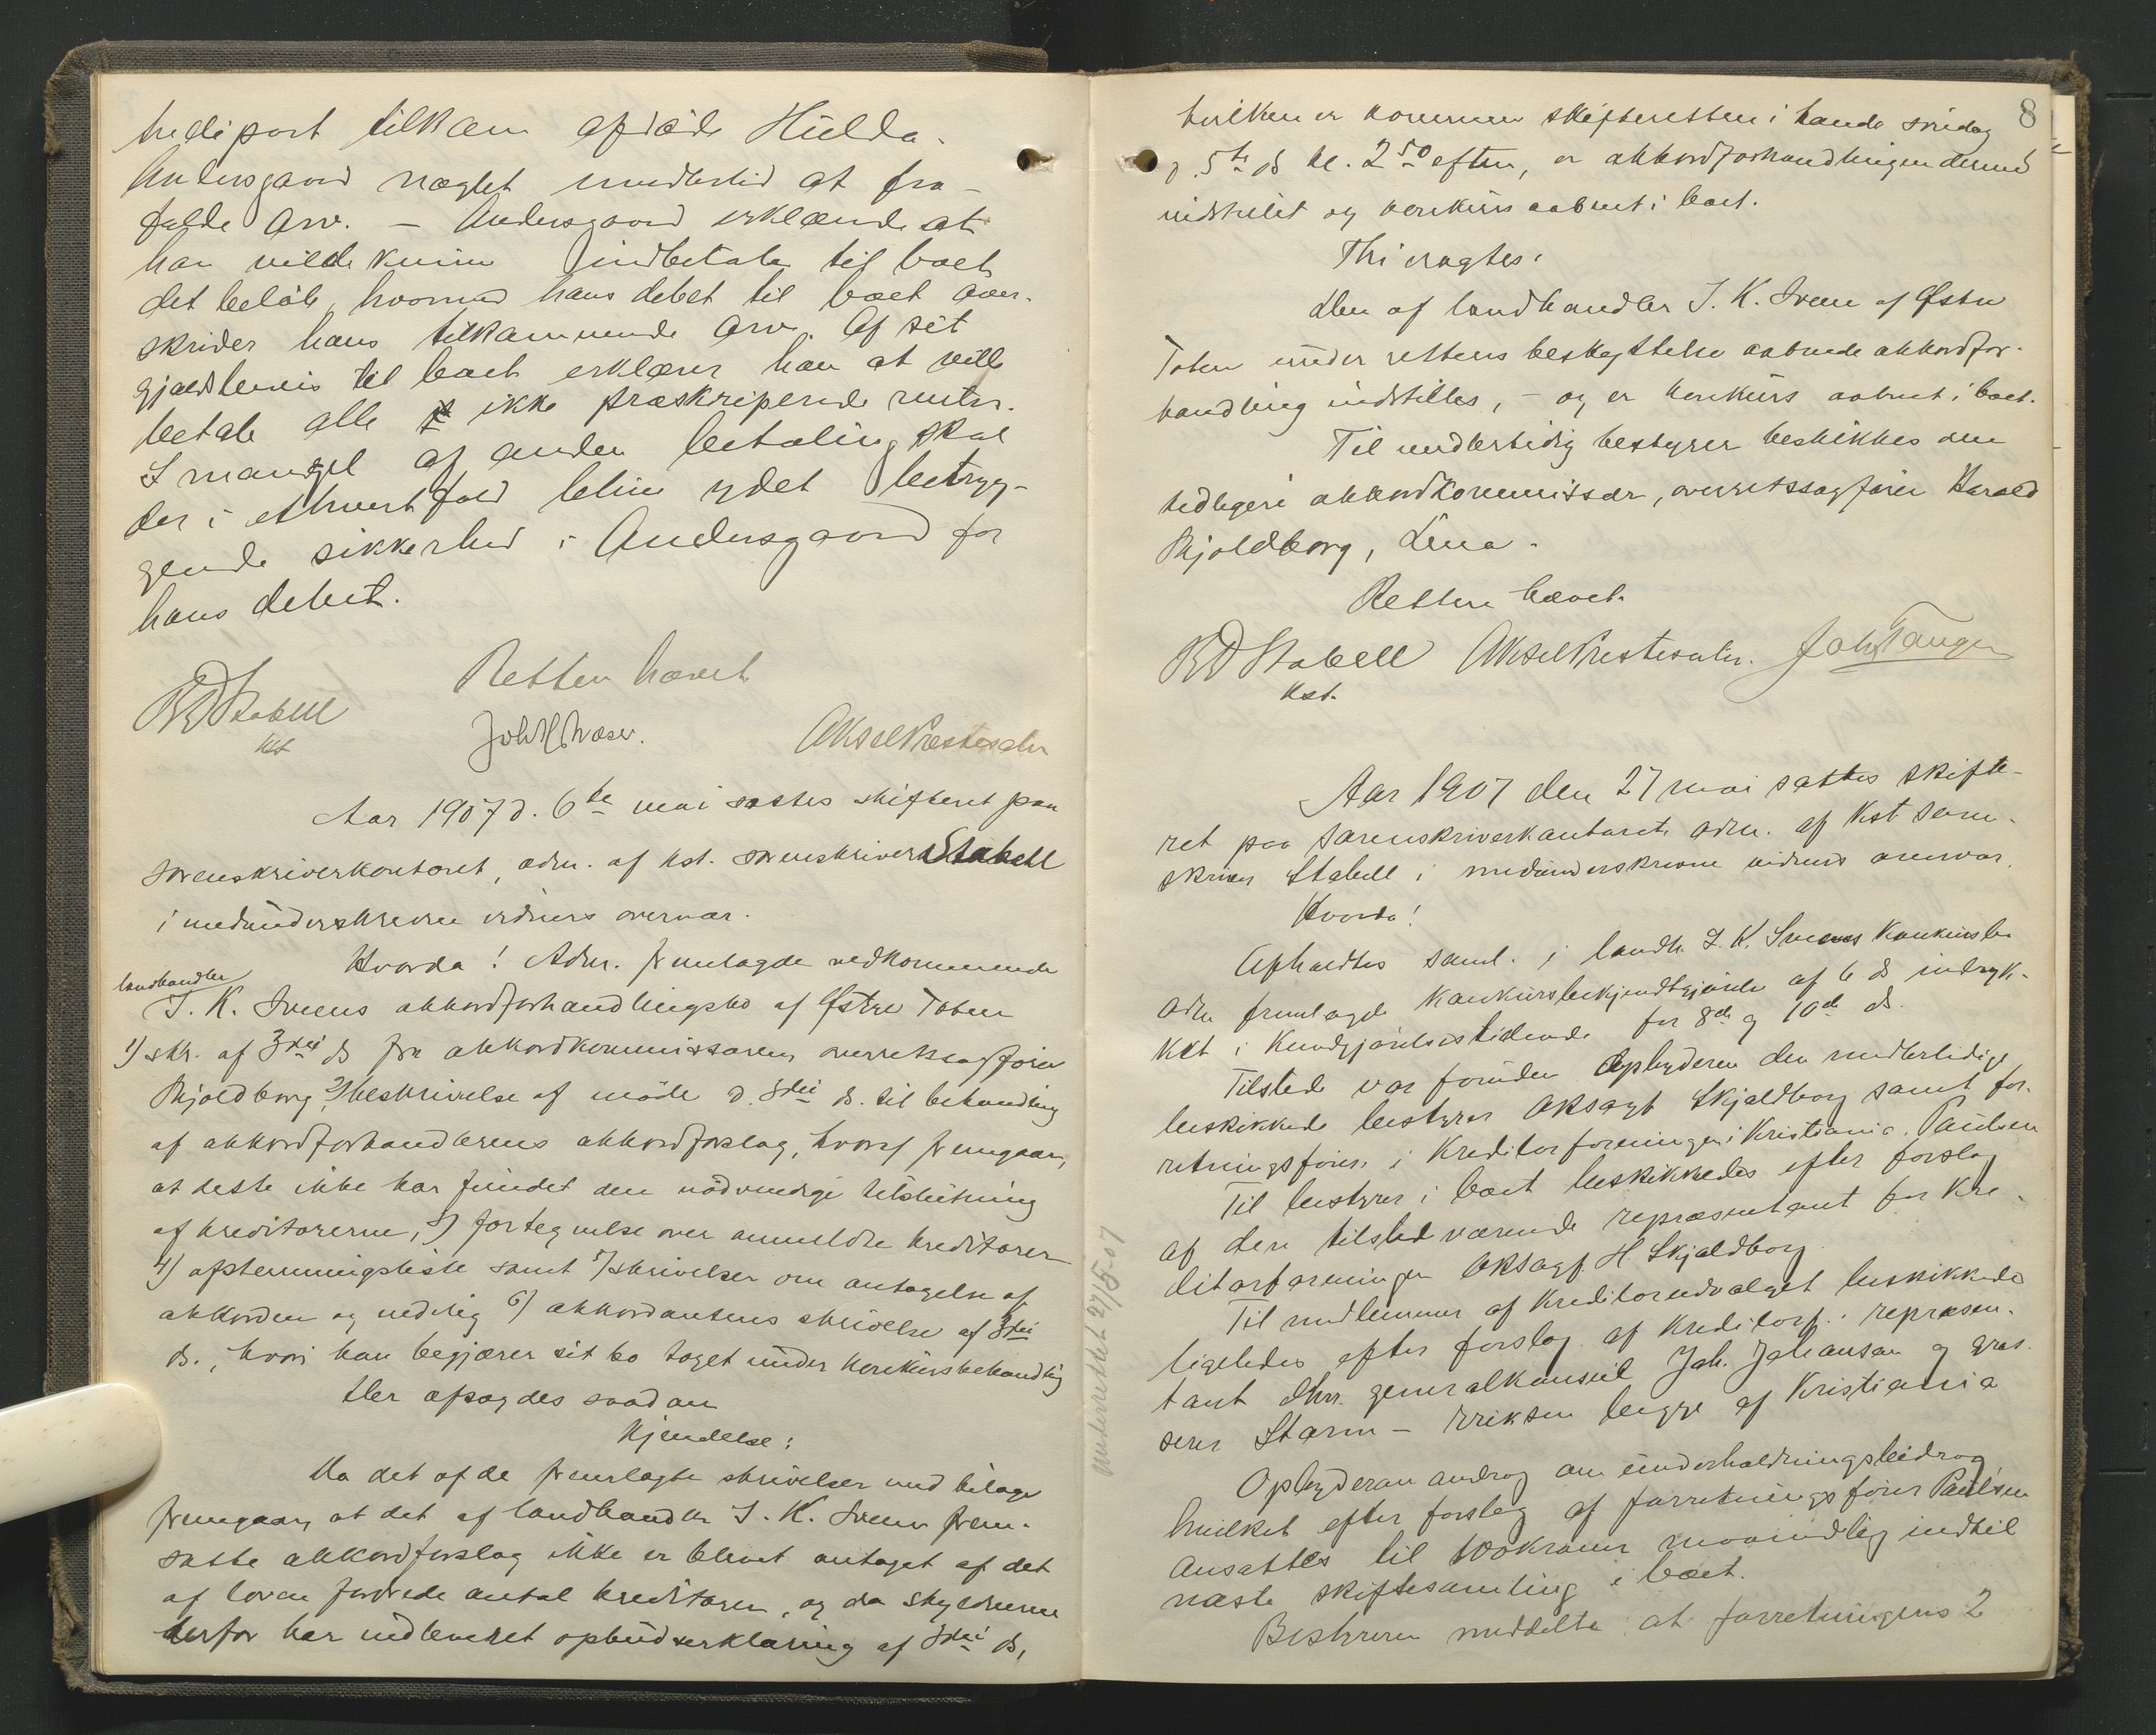 tredipart tilkom afdøde Hulda.
Andersgaard nægtet imidlertid at fra-
falde arv. — Andersgaard erklærede at
han vilde kunne indbetale til boet
det beløb, hvormed hans debet til boet over-
skrider hans tilkommende arv. Af sit
gjældsbevis til boet erklærer han at ville
betale alle ikke præskriperede renter.
I mangel af anden betaling skal
der i ethvert fald blive ydet betryg-
gende sikkerhed i Andersgaard for
hans debet.
Retten hævet
BD Stabell
kst
Joh. Aksel Prestesæter
Aar 1907 d. 6te mai sattes skifteret paa
sorenskriverkontoret, adm. af kst. sorenskriver Stabell
i medunderskrevne vidners overvær.
Hvorda! Adm. fremlagde vedkommende
landhandler
I. K. Sveens akkordforhandlingsbo af Østre Toten
1) skr. af 3die ds fra akkordkommissæren, overretssagfører
Skjoldborg, 2) beskrivelse af møde d. 3die ds. til behandling
af akkordforhandlerens akkordforslag, hvoraf fremgaar,
at dette ikke har fundet den nødvendige tilslutning
af kreditorerne, 3) fortegnelse over anmeldte kreditorer
4) afstemningsliste samt 5) skrivelser om antagelse af
akkorden og nedlig 6) akkordantens skrivelse af 3die
ds., hvori han begjærer sit bo taget under konkursbehandlig
Der afsagdes saadan
Kjendelse:
Da det af de fremlagte skrivelser med bilage
fremgaar, at det af landhandler I. K. Sveen frem-
satte akkordforslag ikke er blevet antaget af det
af loven fordrede antal kreditorer, og da skyldneren
derfor har indleveret opbudserklæring af 3die ds,
8
hvilken er kommen skifteretten i hænde søndag
d. 5te ds kl. 2 50 eftm, er akkordforhandlingen dermed
indstillet og konkurs aabnet i boet.
Thi eragtes:
Den af landhandler I. K. Sveen af Østre
Toten under rettens beskyttelse aabnede akkordfor-
handling indstilles, — og er konkurs aabnet i boet.
Til midlertidig bestyrer beskikkes den
tidligere akkordkommissær, overretssagfører Harald
Skjoldborg, Lena.
Retten hævet.
BD Stabell Aksel Prestesæter. Joh Tangen
kst.
Aar 1907 den 27 mai sattes skifte-
ret paa sorenskriverkontoret adm. af kst soren-
skriver Stabell i medunderskrevne vidners overvær.
Hvorda!
Afholdtes saml. i landh. I. K. Sveens konkursbo
Adm fremlagde konkursbekjendtgjørelse af 6 ds indryk-
ket i Kundgjørelsestidende for 8de og 10de ds.
Tilstede var foruden opbyderen den midlertidige
beskikkede bestyrer ORsagf Skjoldborg samt for-
retningsfører i Kreditorforeningen i Kristiania Paulsen
Til bestyrer i boet beskikkedes efter forslag
af den tilstedværende repræsentant for Kre-
ditorforeningen ORsagf. H Skjoldborg
Til medlemmer af kreditorudvalget beskikkedes
ligeledes efter forslag af kreditorf.s repræsen-
tant dhrr. generalkonsul Joh. Johansen og gros-
serer Storm-Eriksen begge af Kristiania
Opbyderen androg om underholdningsbidrag
hvilket efter forslag af forretningsfører Paulsen
ansattes til 100 kroner maanedlig indtil
næste skiftesamling i boet.
Bestyreren meddelte at forretningens 2
underrettet 27/5-07